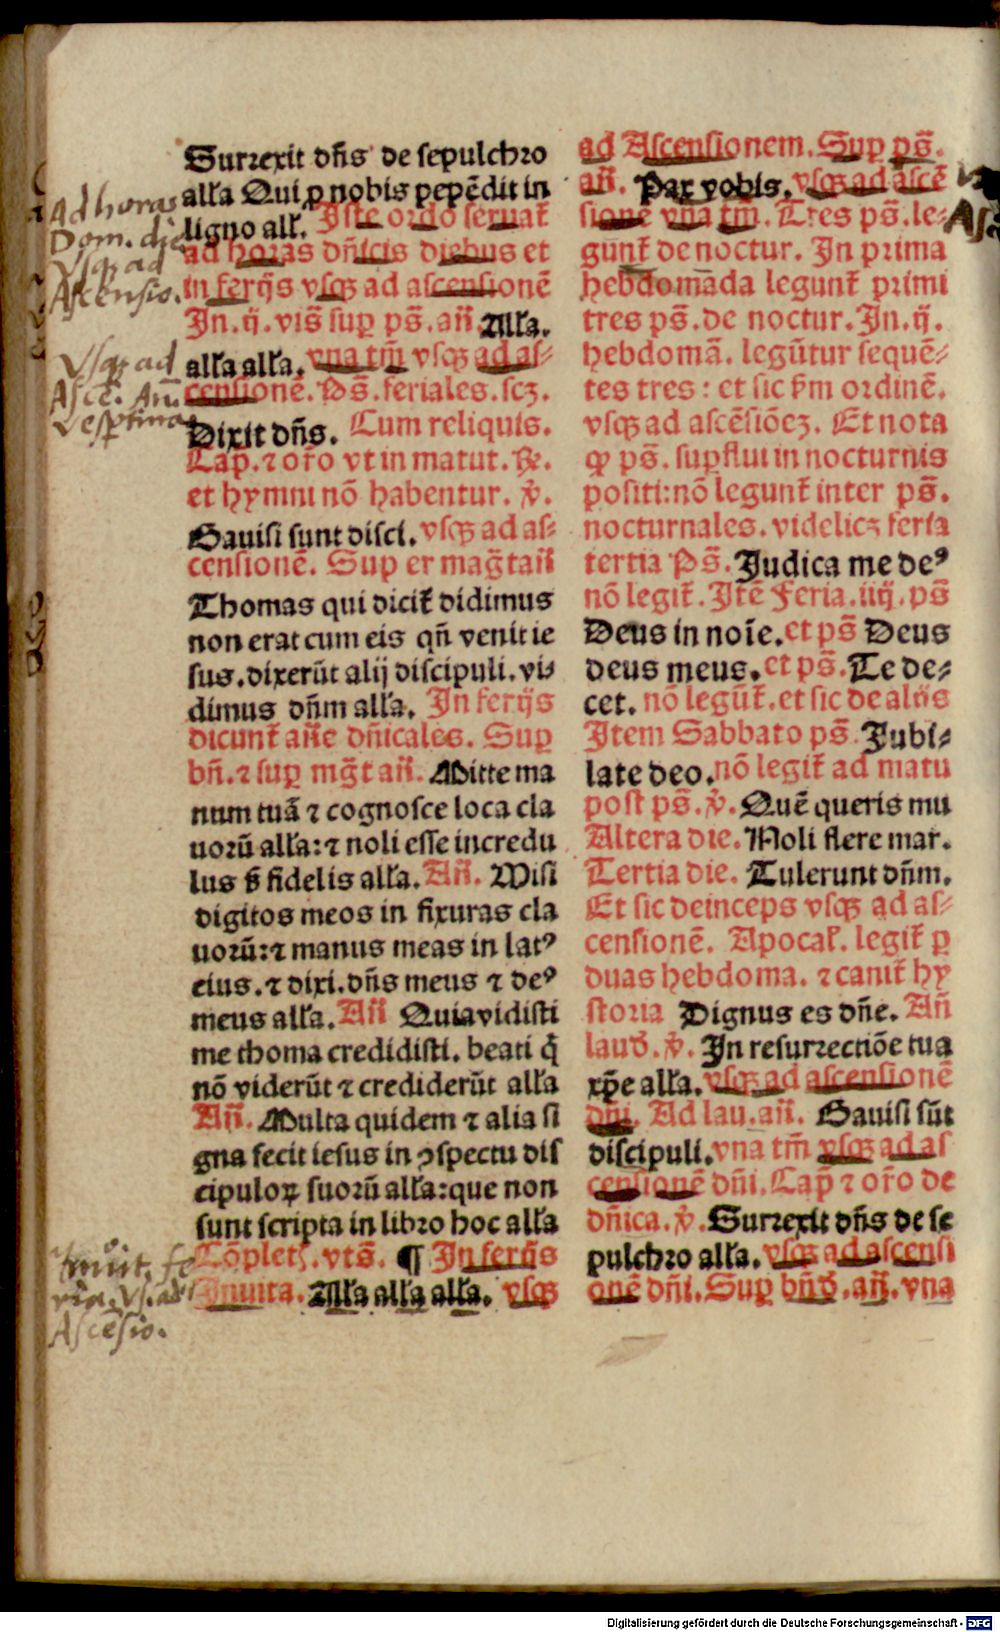 Surrexit dn̄s de sepulchro
alľa Qui ꝑ nobis pepēdit in
ligno alľ. Iste ordo seruaꝶ
ad horas dn̄icis diebus et
in ferijs vsqꝫ ad ascensionē
In. ij. vis̄ suꝑ ps̄. an̄. Alľa.
alľa alľa. vna tm̄ vsqꝫ ad as-
censionē. Ps̄. feriales. scꝫ.
Dixit dn̄s. Cum reliquis.
Cap̄. ⁊ oro vt in matut. ℟.
et hymni nō habentur. ꝟ.
Gauisi sunt disci. vsqꝫ ad as-
censionē. Sup er mag̅t an̄
Thomas qui diciꝶ didimus
non erat cum eis qn̄ venit ie
sus. dixerūt alij discipuli. vi-
dimus dn̄m alľa. In ferijs
dicunꝶ an̄e dn̄icales. Suꝑ
bn̄. ⁊ suꝑ mg̅t an̄. Mitte ma
num tuā ⁊ cognosce loca cla
uorū alľa: ⁊ noli esse incredu
lus s̄ fidelis alľa. An̄. Misi
digitos meos in fixuras cla
uorū: ⁊ manus meas in latꝰ
eius. ⁊ dixi. dn̄s meus ⁊ deꝰ
meus alľa. An̄ Quia vidisti
me thoma credidisti. beati q̄
nō viderūt ⁊ crediderūt alľa
An̄. Multa quidem ⁊ alia si
gna fecit iesus in ꝯspectu dis
cipuloꝝ suorū alľa: que non
sunt scripta in libro hoc alľa
Cōpleť. vts̄. ¶ In ferijs
Inuita. Alľa alľa alľa. vsqꝫ
ad Ascensionem. Suꝑ ps̄.
an̄. Pax vobis. vsqꝫ ad ascē
sionē vna tm̄. Tres ps̄. le-
gunꝶ de noctur. In prima
hebdomada legunꝶ primi
tres ps̄. de noctur. In. ij.
hebdomā. legūtur sequē-
tes tres: et sic ẜm ordinē.
vsqꝫ ad ascēsiōeꝫ. Et nota
ꝙ ps̄. suꝑflui in nocturnis
positi: nō legunꝶ inter ps̄.
nocturnales. videlicꝫ feria
tertia Ps̄. Judica me deꝰ
nō legiꝶ. Itē Feria. iiij. ps̄
Deus in noīe. et ps̄ Deus
deus meus. et ps̄. Te de-
cet. nō legūꝶ. et sic de alijs
Item Sabbato ps̄. Jubi-
late deo. nō legiꝶ ad matu
post ps̄. ꝟ. Quē queris mu
Altera die. Noli flere mar.
Tertia die. Tulerunt dn̄m.
Et sic deinceps vsqꝫ ad as-
censionē. Apocaľ. legiꝶ ꝑ
duas hebdoma. ⁊ caniꝶ hy
storia Dignus es dn̄e. An̄
laud̄. ꝟ. In resurrectiōe tua
xp̄e alľa. vsqꝫ ad ascensionē
dn̄i. Ad lau. an̄. Gauisi sūt
discipuli. vna tm̄ vsqꝫ ad as
censionē dn̄i. Cap̄ ⁊ oro de
dn̄ica. ꝟ. Surrexit dn̄s de se
pulchro alľa. vsqꝫ ad ascensi
onē dn̄i. Suꝑ bn̄d̄. an̄. vna
Ad horas
Dom. die
Vsqꝫ ad
Ascensio.
Vsqꝫ ad
Asce. An̄
vesꝑtina
Vs. ad
Ascēsio.
As
Digitalisierung gefördert durch die Deutsche Forschungsgemeinschaft - DFG